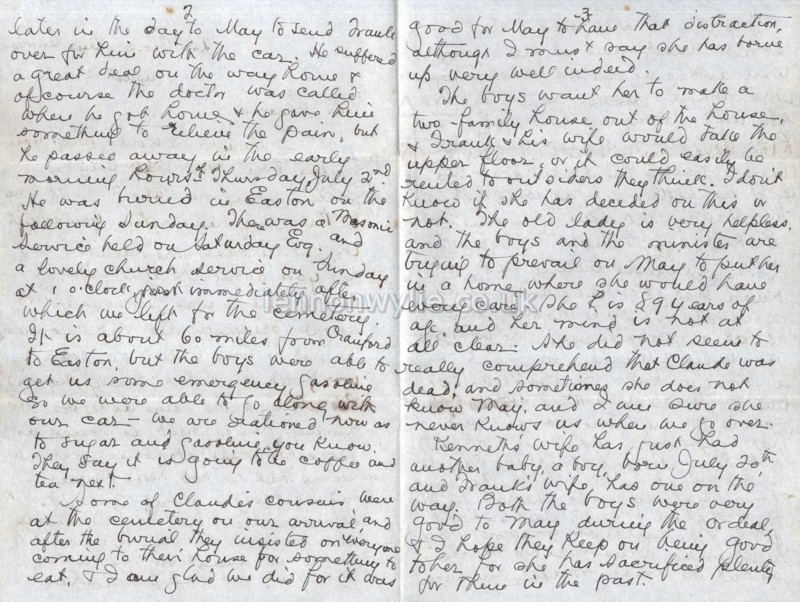 2
later in the day to May to send Frank
over for him with the car. He suffered
a great deal on the way home &
of course the doctor was called
when he got home & he gave him
something to relieve the pain, but
he passed away in the early
morning hours of Thursday July 2nd.
He was buried in Easton on the
following Sunday. There was a Masonic
service held on Saturday Evg. and
a lovely church service on Sunday
at 1 o'clock, just immediately after
which we left for the cemetery.
It is about 60 miles from Cranford
to Easton, but the boys were able to
get us some emergency gasoline
so we were able to go along with
our car - we are rationed now as
to sugar and gasoline, you know.
They say it is going to be coffee and
tea next. -
Some of Claude's cousins were
at the cemetery on our arrival, and
after the burial they insisted on everyone
coming to their house for something to
eat, & I am glad we did for it was
3
good for May to have that distraction,
although I must say she has borne
up very well indeed.
The boys want her to make a
two-family house out of the house,
& Frank & his wife would take the
upper floor, or it could easily be
rented to outsiders they think. I don't
know if she has decided on this or
not. The old lady is very helpless.
and the boys and the minister are
trying to prevail on May to put her
in a home where she would have
every care. She is 89 years of
age and her mind is not at
all clear. She did not seem to
really comprehend that Claude was
dead, and sometimes she does not
know May, and I am sure she
never knows us when we go over.
Kenneth's wife has just had
another baby, a boy, born July 20th
and Frank's wife has one on the
way. Both the boys were very
good to May during the ordeal,
& I hope they keep on being good
to her for she has sacrificed plenty
for them in the past.
lennonwylie.co.uk